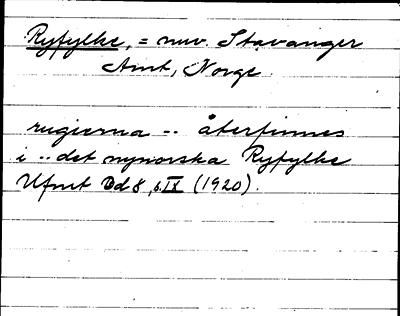 Ryfylke, = nuv. Stavanger
Amt, Norge.
rugierna -- återfinnes
i -- det nynorska Ryfylke
Ufmt Bd 8, s. IX (1920).